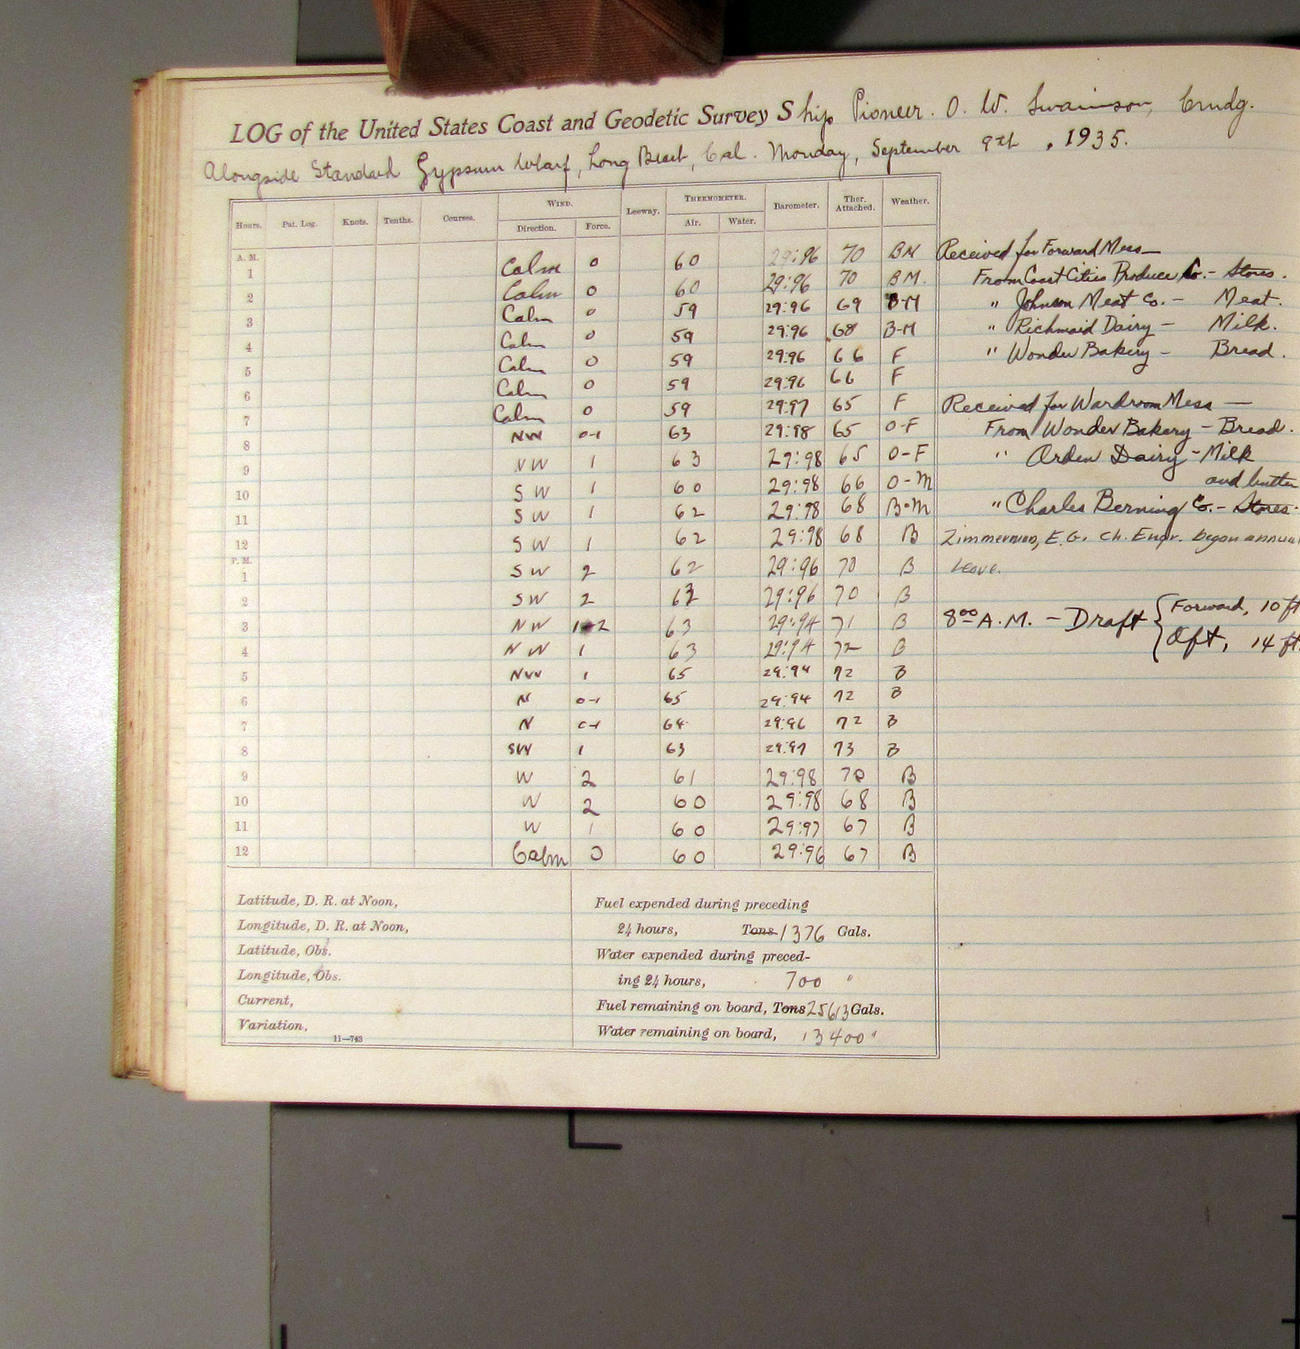 LOG of the United States Coast and Geodetic Survey Ship Pioneer. O. W. Swainson, Cmdg.
Alongside Standard Gypsum Wharf, Long Beach, Cal. Monday, September 9th, 1935.
Hours. Pat. Log. Knots. Tenths. Courses. WIND. Leeway. THERMOMETER. Barometer. Ther. Attached. Weather.
Direction. Force. Air. Water.
A. M.
1 Calm 0 60 29:96 70 BM
2 Calm 0 60 29:96 70 BM.
3 Calm 0 59 29:96 69 B-M
4 Calm 0 59 29:96 68 B-M
5 Calm 0 59 29:96 66 F
6 Calm 0 59 29:96 66 F
7 Calm 0 59 29:97 65 F
8 NW 0-1 63 29:98 65 O-F
9 NW 1 63 29:98 65 O-F
10 SW 1 60 29:98 66 O-M
11 SW 1 62 29:98 68 B-M
12 SW 1 62 29:98 68 B
P. M.
1 SW 2 62 29:96 70 B
2 SW 2 63 29:96 70 B
3 NW 1-2 63 29:94 71 B
4 NW 1 63 29:94 72 B
5 NW 1 65 29:94 72 B
6 N 0-1 65 29:94 72 B
7 N 0-1 64 29:96 72 B
8 SW 1 63 29:97 73 B
9 W 2 61 29:98 70 B
10 W 2 60 29:98 68 B
11 W 1 60 29:97 67 B
12 Calm 0 60 29:96 67 B
Received for Forward Mess—
From Coast Cities Produce Co. - Stores.
" Johnson Meat Co. - Meat.
" Richmaid Dairy - Milk.
" Wonder Bakery - Bread.
Received for Wardroom Mess —
From Wonder Bakery - Bread.
" Arden Dairy - Milk
and butter
" Charles Berning Co. - Stores.
Zimmerman, E.G. Ch. Engr. began annual
leave.
8:00 A.M. - Draft { Forward, 10 ft
Aft, 14 ft.
Latitude, D. R. at Noon,
Longitude, D. R. at Noon,
Latitude, Obs.
Longitude, Obs.
Current,
Variation,
11—743
Fuel expended during preceding
24 hours, Tons 1376 Gals.
Water expended during preced-
ing 24 hours, 700 "
Fuel remaining on board, Tons 25613 Gals.
Water remaining on board, 13400 "